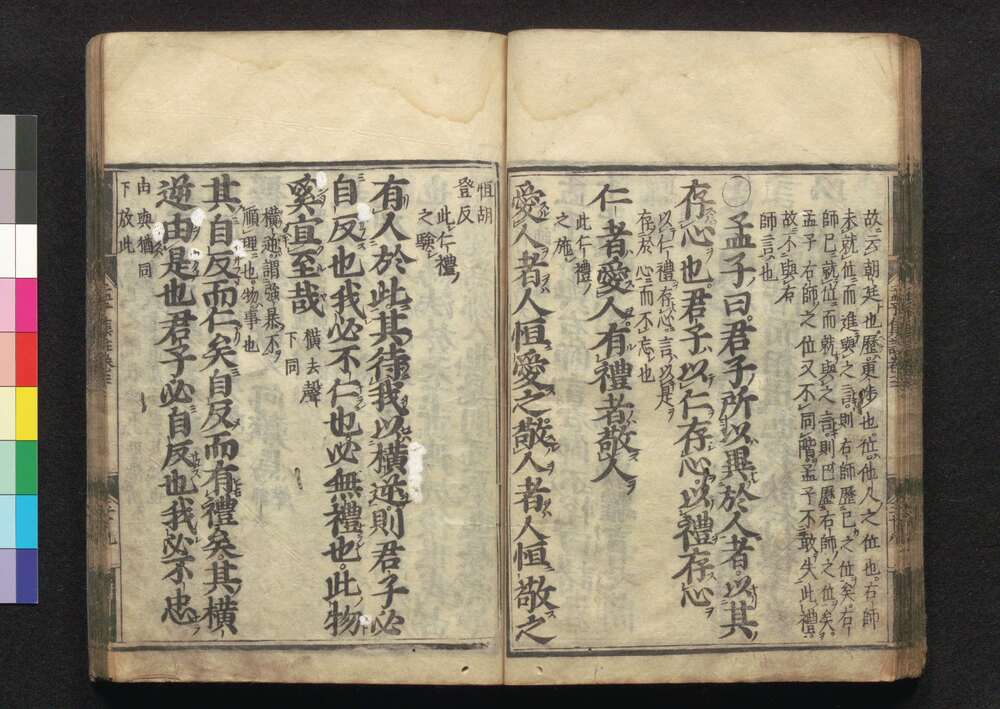 故云朝廷也歷更渉也位他人之位也右師
未就位而進與之言則右師歷己之位矣右
師已就位而就與之言則己歷右師之位矣
孟子右師之位又不同階孟子不敢失此禮
故不與右
師言也
○孟子曰君子所以異於人者以其
存心也君子以仁存心以禮存心
以仁禮存心言以是
存於心而不忘也
仁者愛人有禮者敬人
此仁禮
之施
愛人者人恒愛之敬人者人恒敬之
恒胡
登反
此仁禮
之驗
有人於此其待我以橫逆則君子必
自反也我必不仁也必無禮也此物
奚宜至哉
橫去聲
下同
橫逆謂強暴不
順理也物事也
其自反而仁矣自反而有禮矣其橫
逆由是也君子必自反也我必不忠
由與猶同
下放此